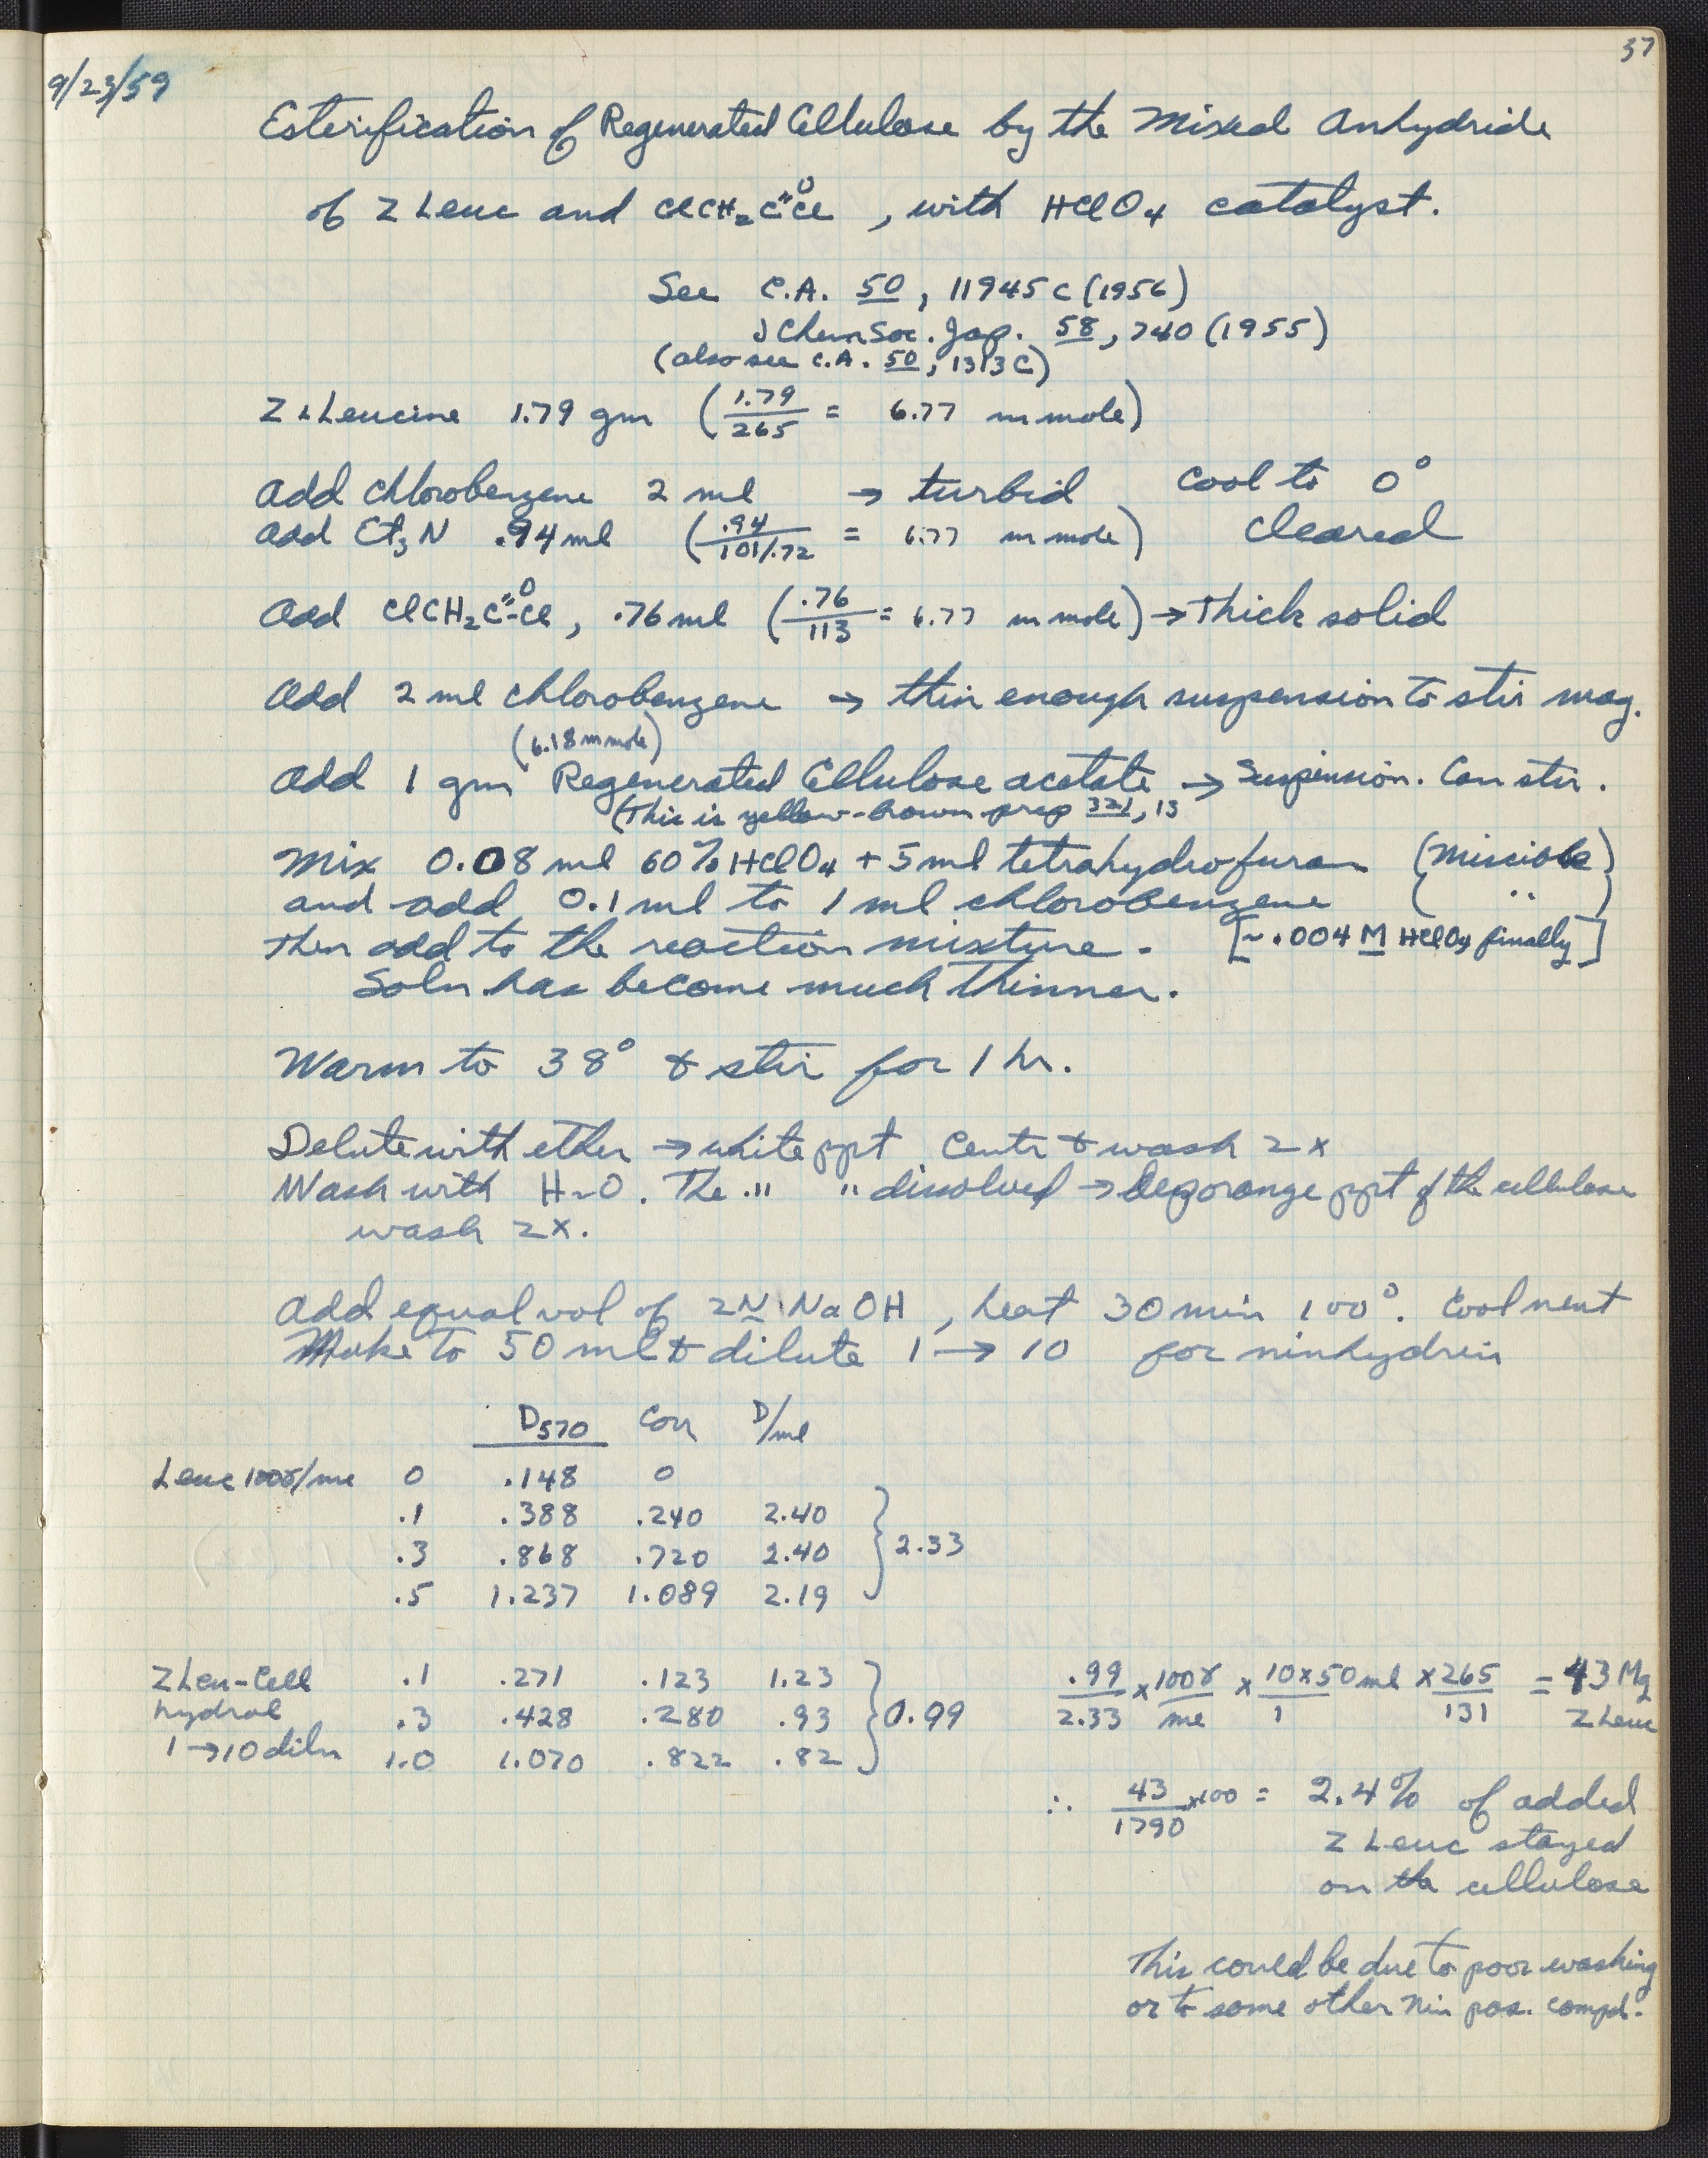 37
9/23/59
Esterification of Regenerated Cellulose by the Mixed Anhydride
of Z Leuc and ClCH₂C(=O)Cl, with HClO₄ catalyst.
See C.A. 50, 11945c (1956)
J Chem Soc. Jap. 58, 740 (1955)
(also see C.A. 50, 1313c)
Z L Leucine 1.79 gm (1.79/265 = 6.77 m mole)
Add chlorobenzene 2 ml → turbid Cool to 0°
Add Et₃N .94 ml (.94/101/.72 = 6.77 m mole) Cleared
Add ClCH₂C(=O)Cl, .76 ml (.76/113 = 6.77 m mole) → Thick solid
Add 2 ml chlorobenzene → thin enough suspension to stir mag.
(6.18 mmole)
Add 1 gm Regenerated Cellulose acetate → Suspension. Can stir.
(This is yellow-brown prep 321, 13
Mix 0.08 ml 60% HClO₄ + 5 ml tetrahydrofuran (miscible)
and add 0.1 ml to 1 ml chlorobenzene ( " )
Then add to the reaction mixture. [~.004 M HClO₄ finally]
Soln has become much thinner.
Warm to 38° & stir for 1 hr.
Delute with ether → white ppt Centr & wash 2x
Wash with H₂O. The " " dissolved → orange ppt of the cellulose
wash 2x.
Add equal vol of 2N NaOH, heat 30 min 100°. Cool neut
Make to 50 ml & dilute 1 → 10 for ninhydrin
D₅₇₀ Corr D/ml
Leuc 100γ/ml 0 .148 0
.1 .388 .240 2.40
.3 .868 .720 2.40 } 2.33
.5 1.237 1.089 2.19
Z Leu-Cell .1 .271 .123 1.23 .99/2.33 × 100γ/ml × 10×50 ml/1 × 265/131 = 43 Mg Z Leuc
hydrol .3 .428 .280 .93 } 0.99
1→10 diln 1.0 1.070 .822 .82
∴ 43/1790 ×100 = 2.4% of added
Z Leuc stayed
on the cellulose
This could be due to poor washing
or to some other nin pos. compd.